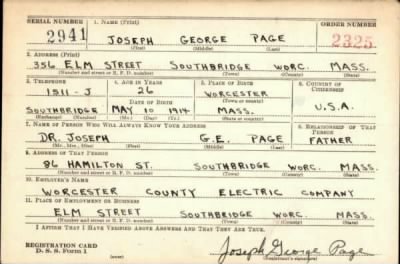 SERIAL NUMBER 1. NAME (Print) ORDER NUMBER
2941 JOSEPH GEORGE PAGE 2325
(First) (Middle) (Last)
2. ADDRESS (Print)
356 ELM STREET SOUTHBRIDGE WORC. MASS.
(Number and street or R. F. D. number) (Town) (County) (State)
3. TELEPHONE 4. AGE IN YEARS 5. PLACE OF BIRTH 6. COUNTRY OF CITIZENSHIP
1511-J 26 WORCESTER
DATE OF BIRTH (Town or county)
SOUTHBRIDGE MAY 10 1914 MASS. U.S.A.
(Exchange) (Number) (Mo.) (Day) (Yr.) (State or country)
7. NAME OF PERSON WHO WILL ALWAYS KNOW YOUR ADDRESS 8. RELATIONSHIP OF THAT PERSON
DR. JOSEPH G.E. PAGE FATHER
(Mr., Mrs., Miss) (First) (Middle) (Last)
9. ADDRESS OF THAT PERSON
86 HAMILTON ST. SOUTHBRIDGE WORC. MASS.
(Number and street or R. F. D. number) (Town) (County) (State)
10. EMPLOYER'S NAME
WORCESTER COUNTY ELECTRIC COMPANY
11. PLACE OF EMPLOYMENT OR BUSINESS
ELM STREET SOUTHBRIDGE WORC. MASS.
(Number and street or R. F. D. number) (Town) (County) (State)
I AFFIRM THAT I HAVE VERIFIED ABOVE ANSWERS AND THAT THEY ARE TRUE.
REGISTRATION CARD
D. S. S. Form 1 (over) Joseph George Page
(Registrant's signature)